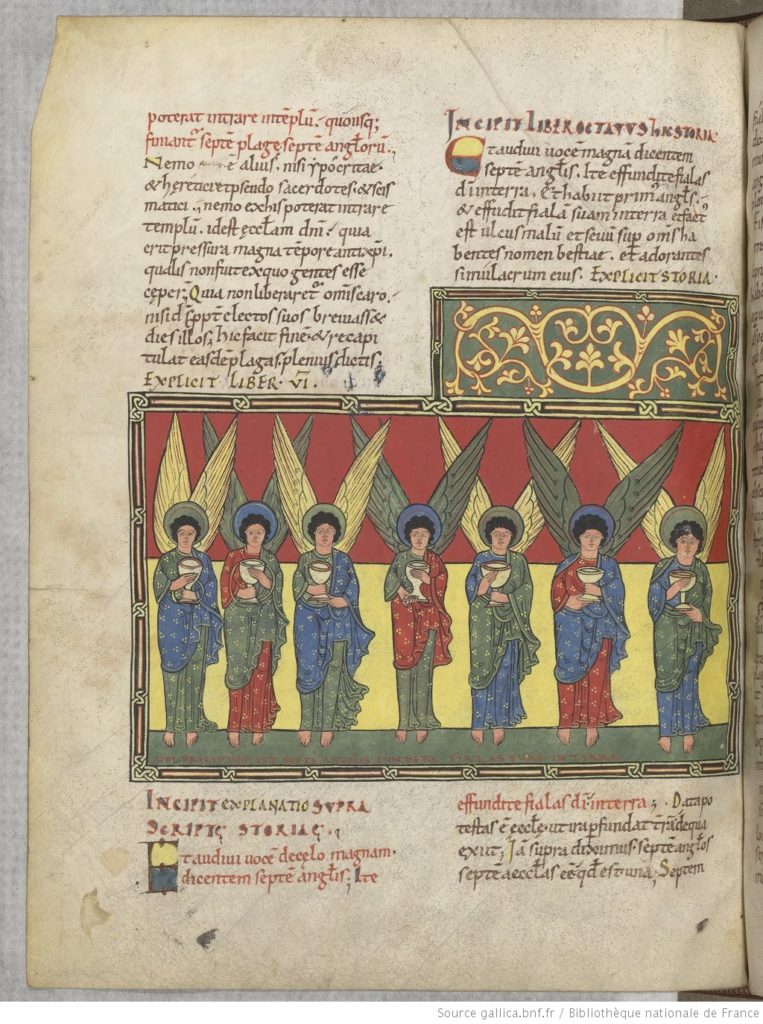 poterat intrare intēplū. quousq;
finiant̄ septē plage septē angłorū.,
Nemo ē alius. nisi ypocritae.
& heretici et pseudo sacerdotes. & scis
matici., nemo ex his poterat intrare
templū. id est ęcclam dnī. quia
erit pressura magna tēpore antixpi.
qualis non fuit ex quo gentes esse
ceper̄; Quia non liberaret̄ omīs caro.
nisi dś ꝓpt electos suos breviass&
dies illos; hic facit finē. & recapi
tulat easdē plagas. plenius dictis.
EXPLICIT LIBER · VI ·
INCIPIT LIBER OCTAVUS hISTORIA
Et audivi vocē magnā dicentem
septē anglis. Ite effundite fialas
dī in terra. Et habiit primus angłs.
& effudit fialā suam in terra et faet
est ulcus malū et sevū sup omīs ha
bentes nomen bestiae. et adorantes
simulacrum eius. EXPLICIT STORIA.
INCIPIT EXPLANATIO SUPRA
SCRIPTĘ STORIAE.
Et audivi vocē de celo magnam.
dicentem septē anglis; Ite
effundite fialas dī in terra; Data po
testas ē ęccle. ut ira pfundat trā de qua
exiit; Iā supra diximus. septē anglos
septē aecclas eē qđ est una; Septem
Source gallica.bnf.fr / Bibliothèque nationale de France